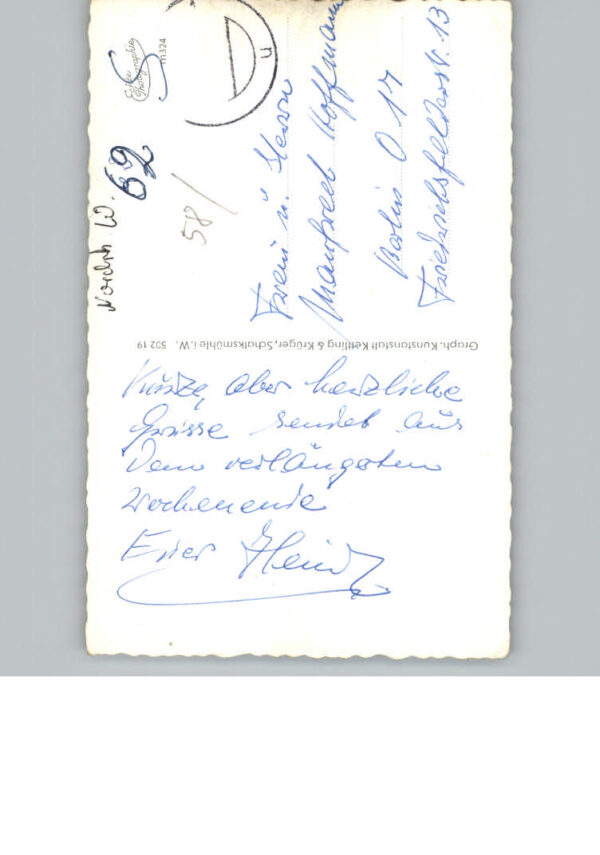 Kurze, aber herzliche
Grüsse sendet aus
dem verlängerten
Wochenende
Euer Heinz
Graph. Kunstanstalt Ketting & Krüger, Schalksmühle i.W. 502 19
Frau u. Herrn
Manfred Hoffmann
Berlin O 17
Friedrichsfelderstr. 13
Nordrh W.
62
58/
Echte
Photographie
m 324